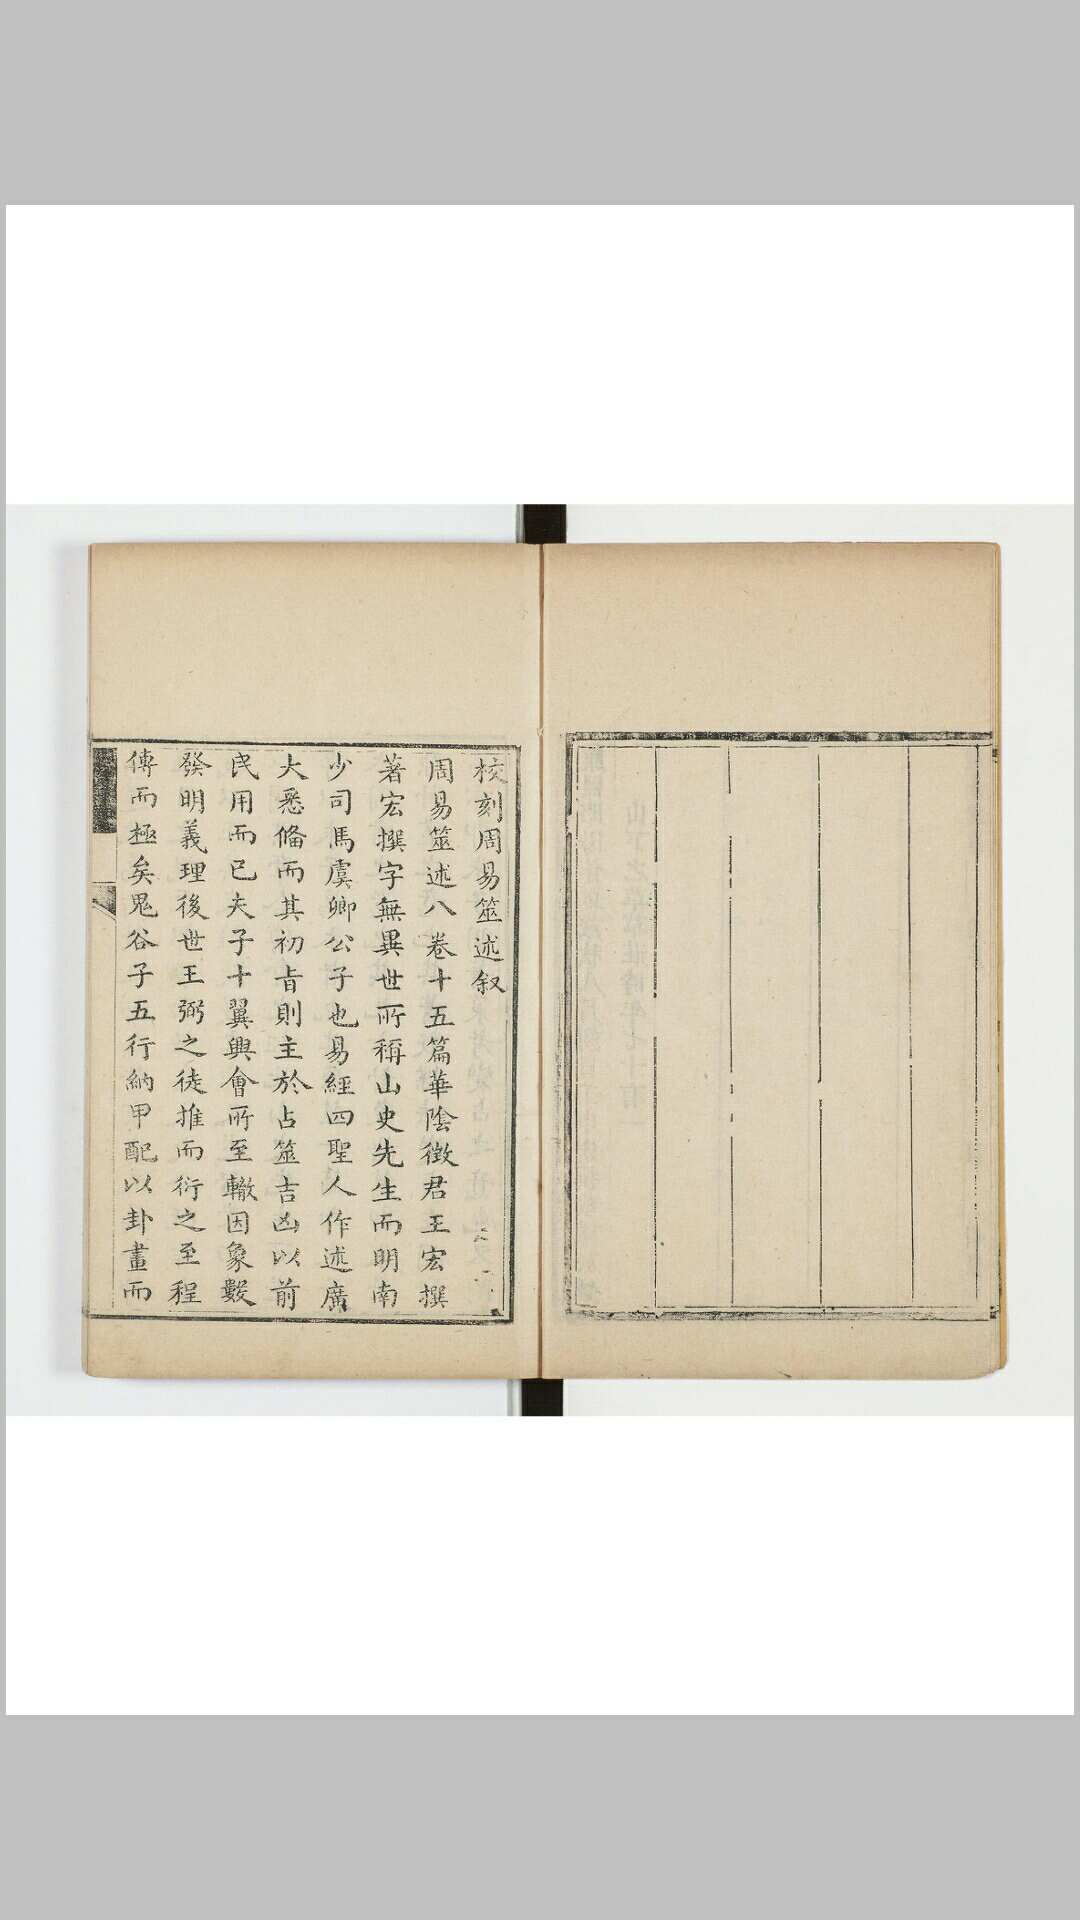 校刻周易筮述叙
周易筮述八卷十五篇華陰徵君王宏撰
著宏撰字無異世所稱山史先生而明南
少司馬虞卿公子也易經四聖人作述廣
大悉備而其初旨則主於占筮吉凶以前
民用而已夫子十翼興會所至轍因象數
發明義理後世王弼之徒推而衍之至程
傳而極矣鬼谷子五行納甲配以卦畫而